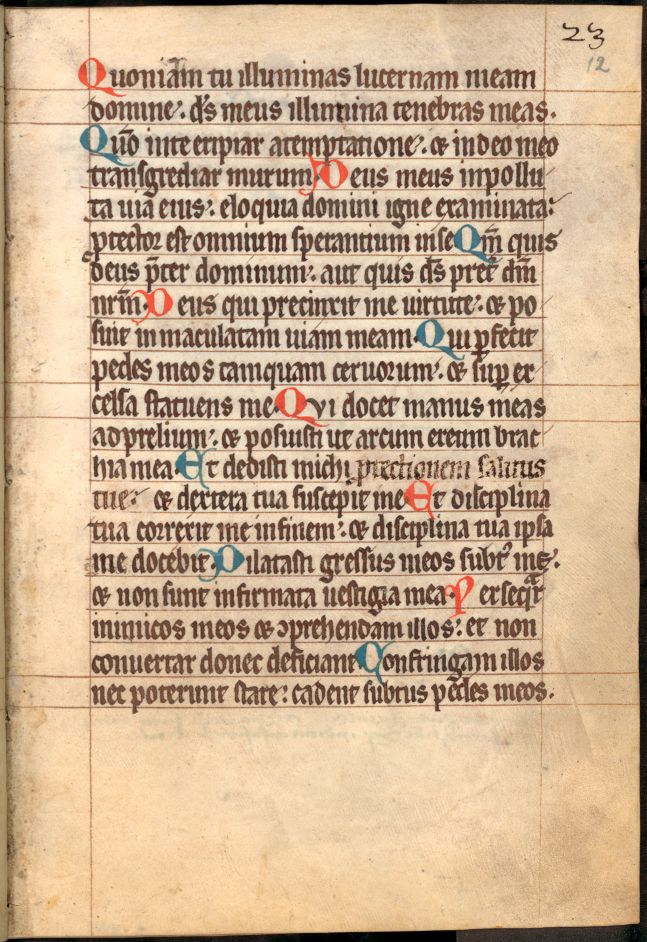 23
12
Quoniam tu illuminas lucernam meam
domine: ds̄ meus illumina tenebras meas.
Qūo in te eripiar a temptatione: et in deo meo
transgrediar murum. Deus meus inpollu
ta uia eius: eloquia domini igne examinata:
ꝓtector est omnium sperantium in se Qm̄ quis
deus p̄ter dominum: aut quis ds̄ pret̄ dm̄
nr̄m. Deus qui precinxit me uirtute: et po
suit inmaculatam uiam meam. Qui ꝑfecit
pedes meos tamquam ceruorum: et suꝑ ex
celsa statuens me. Qvi docet manus meas
ad prelium: et posuisti ut arcum ereum brac
hia mea. Et dedisti michi ꝓtectionem salutis
tue: et dextera tua suscepit me. Et disciplina
tua correxit me in finem: et disciplina tua ipsa
me docebit. Dilatasti gressus meos subt᷑ me:
et non sunt infirmata uestigia mea. Persequar
inimicos meos et ꝯprehendam illos: et non
conuertar donec deficiant Confringam illos
nec poterunt stare: cadent subtus pedes meos.